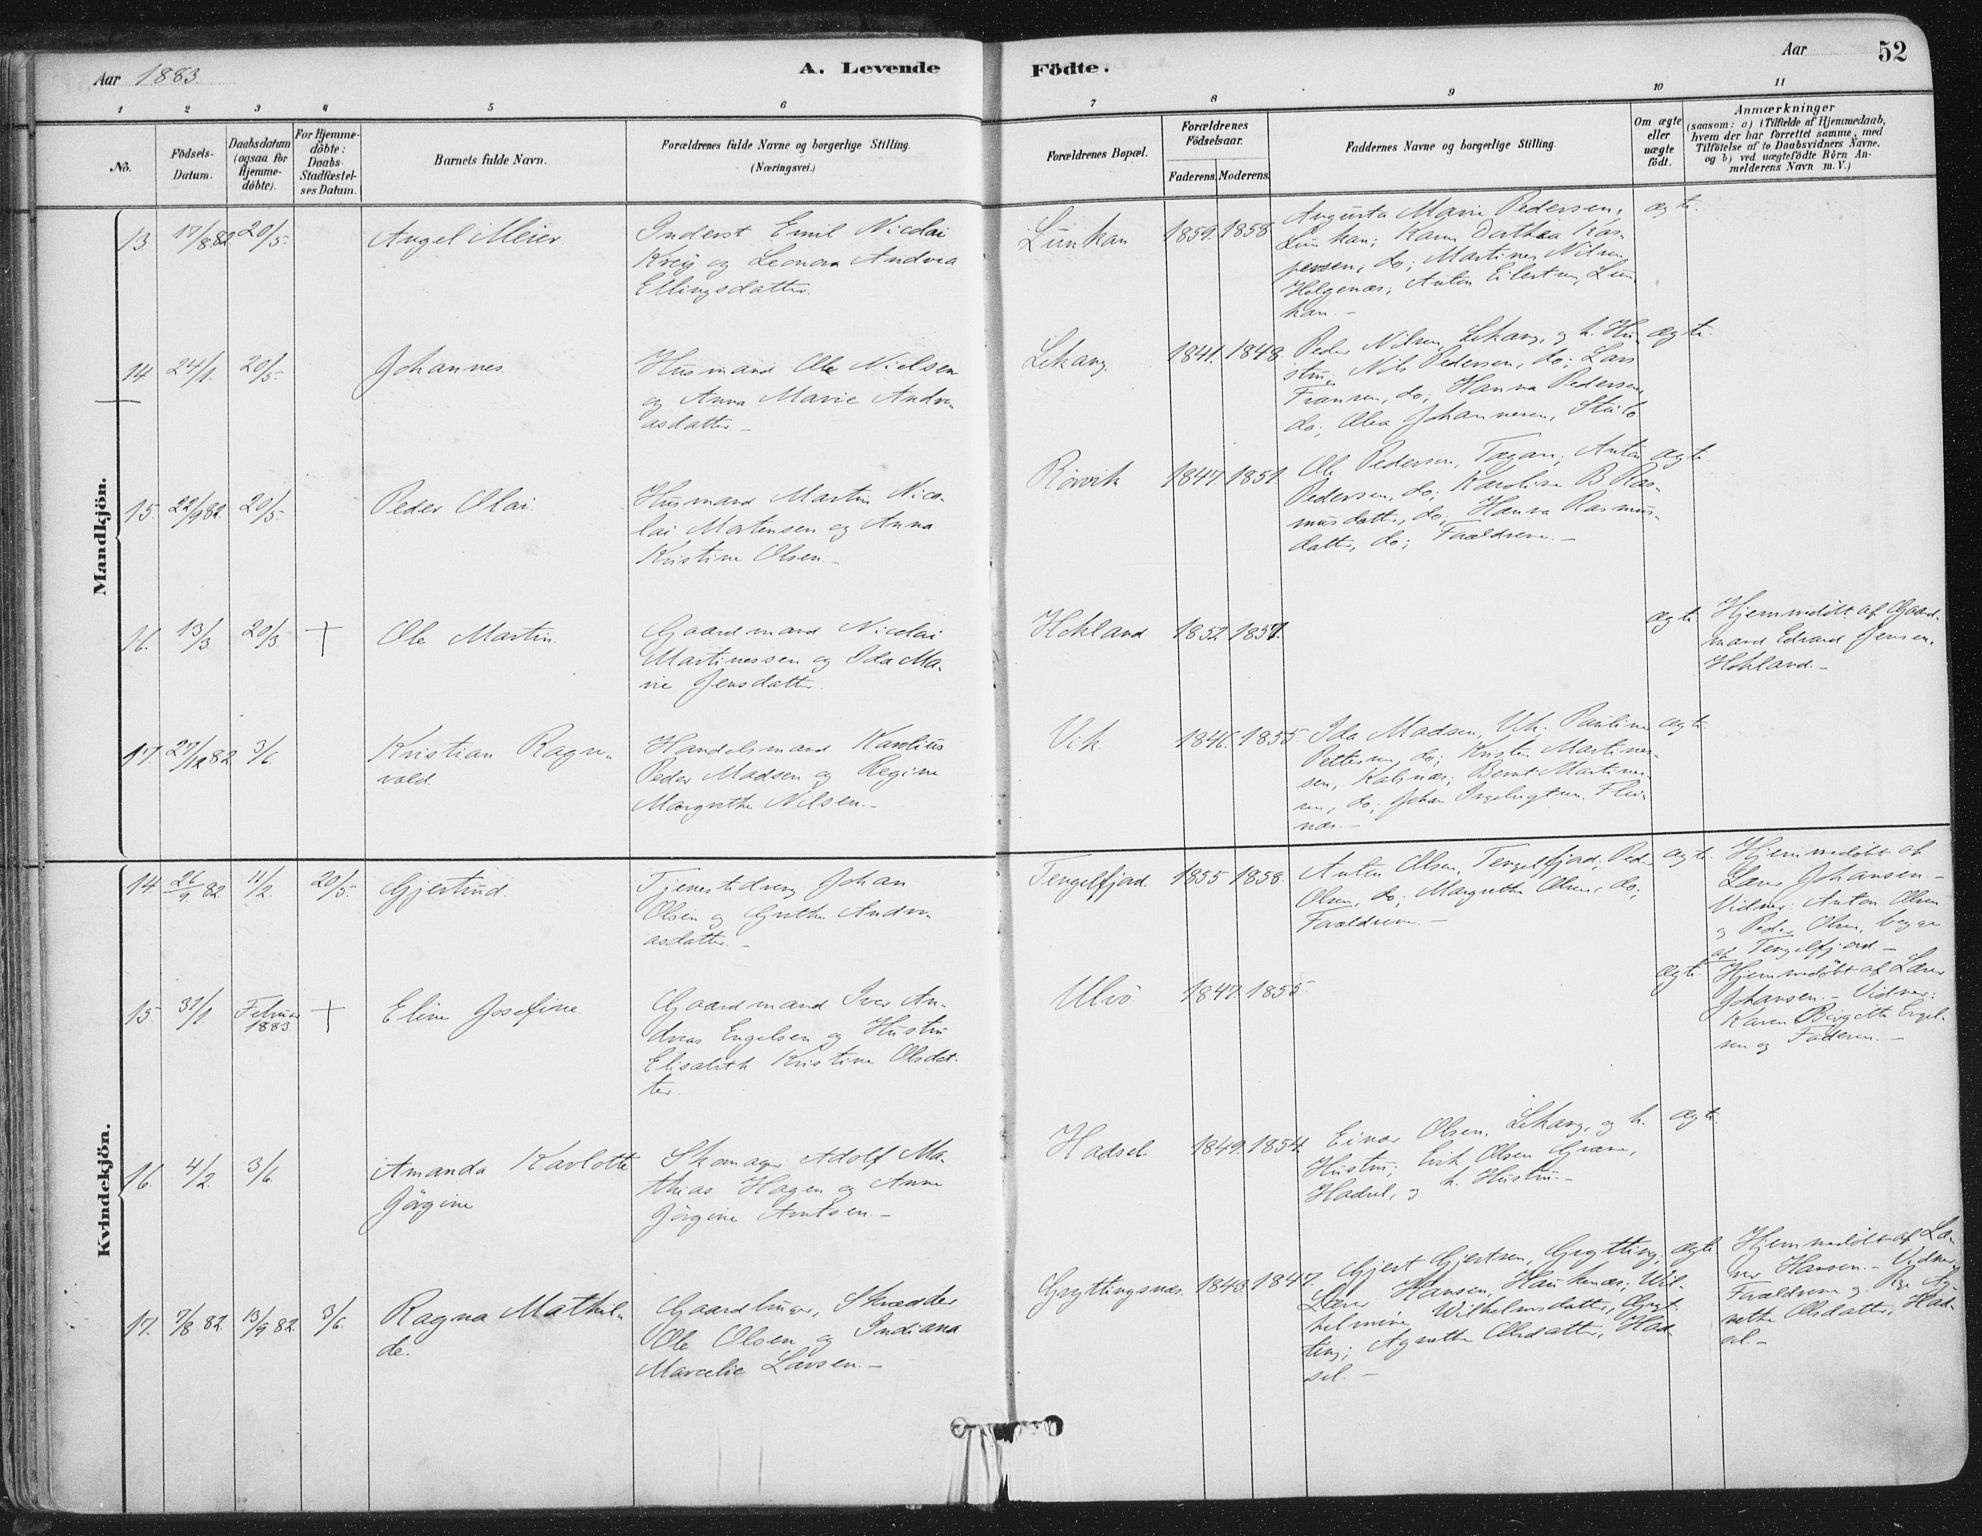 Aar 1883.
A. Levende Födte.
Aar
52
1 2 3 4 5 6 7 8 9 10 11
No.
Födsels-
Datum.
Daabsdatum
(ogsaa for
Hjemme-
döbte).
For Hjemme-
döbte:
Daabs-
Stadfæstel-
ses Datum.
Barnets fulde Navn.
Forældrenes fulde Navne og borgerlige Stilling.
(Næringsvei.)
Forældrenes Bopæl.
Forældrenes
Födselsaar.
Faderens. Moderens.
Faddernes Navne og borgerlige Stilling.
Om ægte
eller
uægte
födt.
Anmærkninger
(saasom: a) i Tilfælde af Hjemmedaab,
hvem der har forrettet samme, med
Tilföielse af to Daabsvidners Navne,
og b) ved uægtefödte Börn An-
melderens Navn m. V.)
Mandkjön.
13 17/8 82 20/5.
Angel Meier
Inderst Emil Nicolai
Kreij og Leonora Andrea
Ellingsdatter.
Lunkan
1859. 1858.
Augusta Marie Pedersen,
Lunkan; Karen Dorthea Kas-
persen, do; Martines Nilsen
Helgenæs; Anton Eilertsen, Lun-
kan. -
ægte.
14 24/1. 20/5.
Johannes
Husmand Ole Nielsen
og Anna Marie Andre-
asdatter. -
Lekang.
1841. 1848.
Peder Nilsen, Lekang, og h. Hu-
stru; Nils Pedersen, do; Lars
Fransen, do; Hanna Pedersen,
do; Olea Johannesen,
ægte.
15. 22/9 82. 20/5.
Peder Olai
Husmand Martin Nico-
lai Mortensen og Anna
Kristine Olsen. -
Rörvik
1847. 1851.
Ole Pedersen, Anton
Pedersen, do; Karoline B Ras-
musdatter, do; Hanna Rasmus-
datter, do; Forældrene. -
ægte.
16. 13/3 20/3. +
Ole Martin.
Gaardmand Nicolai
Martinessen og Ida Ma-
rie Jensdatter.
Hokland
1852. 1857.
ægte.
Hjemmedöbt af Gaard-
mand Edvard Jensen,
Hokland. -
17. 27/12 82 3/6.
Kristian Ragn-
vald.
Handelsmand Karolius
Peder Madsen og Regine
Margrethe Nilsen. -
Vik
1846. 1855.
Ida Madsen, Vik. Pauline
Pettersen, do; Kristen Martines-
sen, Kalsnæs; Bernt Martines-
sen, do; Johan Ingebrigtsen. Fles-
næs. -
ægte.
Kvindekjön.
14. 26/9 82. 11/2. 20/5.
Gjertrud.
Tjenestedreng Johan
Olsen og Grethe Andre-
asdatter. -
Tengelfjord.
1855 1858.
Anton Olsen, Tengelfjord; Peder
Olsen, do; Margrethe Olsen, do;
Forældrene -
ægte.
Hjemmedöbt af
Lærer Johansen. -
Vidner: Anton Olsen
og Peder Olsen, begge
af Tengelfjord -
15. 31/1. Februar
1883. +
Eline Josefine
Gaardmand Iver An-
dreas Engelsen og Hustru
Elisabeth Kristine Olsdat-
ter.
Ulvö
1847. 1855.
ægte.
Hjemmedöbt af Lærer
Johansen. - Vidner:
Karen Birgitte Engel-
sen og Faderen. -
16. 4/2. 3/6.
Amanda Karlotte
Jörgine
Skomager Adolf Ma-
thias Hagen og Anne
Jörgine Arntsen. -
Hadsel.
1849. 1854.
Einar Olsen, Lekang, og h.
Hustru; Erik Olsen
Hadsel, og h. Hustru. -
ægte.
17. 7/8 82. 13/9 82. 3/6.
Ragna Mathil-
de.
Gaardbruger, Skrædder
Ole Olsen og Indiana
Marcelie Larsen. -
Grytingsnæs.
1843. 1847.
Gjert Gjertsen, Grytting;
Lærer Hansen, Haukenæs; Wil-
helmine Wilhelmsdatter, Gryt-
ting; Agnethe Olsdatter, Had-
sel. -
ægte
Hjemmedöbt af Læ-
rer Hansen. - Vidner
Forældrene og Pige Ag-
nethe Olsdatter, Had-
sel. -